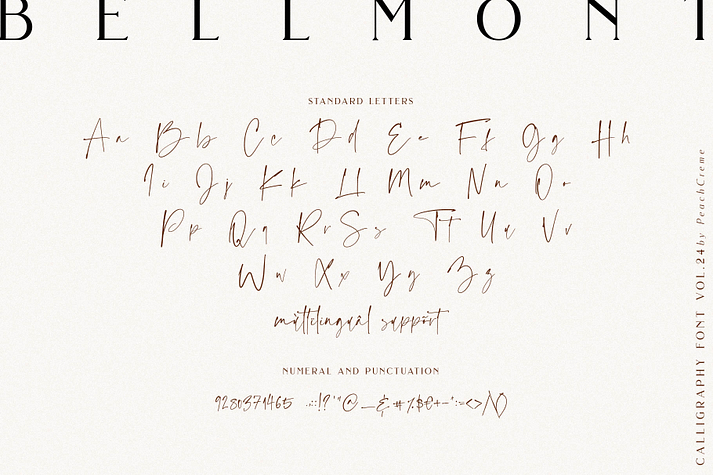 BELLMONT
STANDARD LETTERS
Aa Bb Cc Dd Ee Ff Gg Hh
Ii Jj Kk Ll Mm Nn Oo
Pp Qq Rr Ss Tt Uu Vv
Ww Xx Yy Zz
multilingual support
NUMERAL AND PUNCTUATION
9280371465
CALLIGRAPHY FONT VOL.24 by PeachCreme